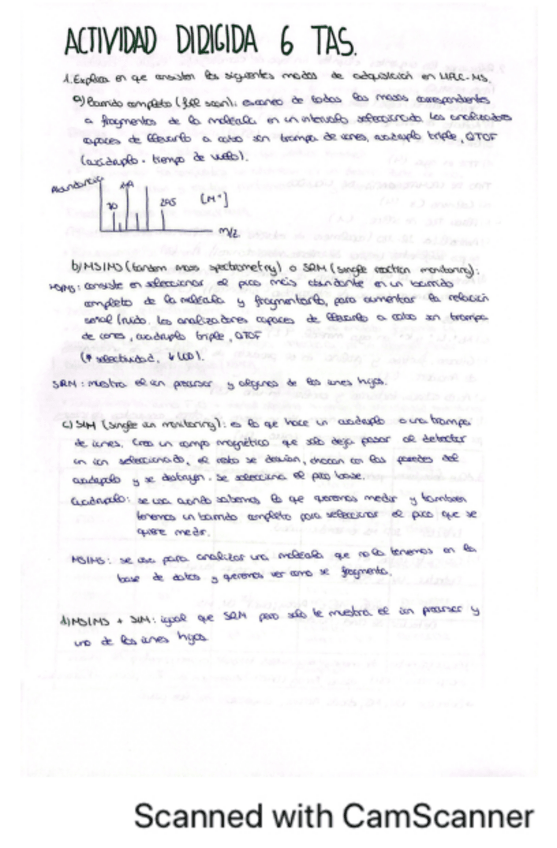 ACTIVIDAD DIRIGIDA 6 TAS.
1. Explica en que consisten los siguientes modos de adquisición en HPLC-MS.
a) Barrido completo (full scan): escaneo de todas las masas correspondientes
a fragmentos de la molécula en un intervalo seleccionado. Los analizadores
capaces de llevarlo a cabo son trampa de iones, cuadrupolo triple, QTOF
(cuadrupolo - tiempo de vuelo).
Abundancia
205 [M+]
m/z
b) MS/MS (tandem mass spectrometry) o SRM (single reaction monitoring):
MS/MS: consiste en seleccionar el pico más abundante en un barrido
completo de la molécula y fragmentarlo, para aumentar la relación
señal/ruido. Los analizadores capaces de llevarlo a cabo son trampa
de iones, cuadrupolo triple, QTOF
(↑ selectividad, ↓ LOD).
SRM: muestra el ion precursor y algunos de los iones hijos.
c) SIM (single ion monitoring): es lo que hace un cuadrupolo o una trampa
de iones. Crea un campo magnético que sólo deja pasar al detector
un ion seleccionado, el resto se desvían, chocan con las paredes del
cuadrupolo y se destruyen. Se selecciona el pico base.
Cuadrupolo: se usa cuando sabemos lo que queremos medir y también
tenemos un barrido completo para seleccionar el pico que se
quiere medir.
MS/MS: se usa para analizar una molécula que no la tenemos en la
base de datos y queremos ver como se fragmenta.
d) MS/MS + SIM: igual que SRM pero sólo te muestra el ion precursor y
uno de los iones hijos.
Scanned with CamScanner